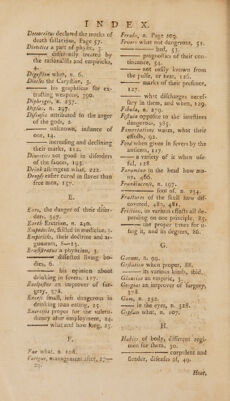 INDEX.
Democritus declared the marks of
death fallacious, Page 57.
Dietetics a part of physic, 3
differently treated by
the rationalists and empirics,
4.
Digestion what, n. 6.
Diocles the Carystian, 3.
his graphiscus for ex-
tracting weapons, 390.
Diphryges, n. 237.
Diseases attributed to the anger
of the gods, 2.
unknown, instance of
one, 14.
increasing and declining
their marks, 112.
Diuretics not good in disorders
of the fauces, 195.
Drink astringent what, 222.
Dropsy easier cured in slaves than
free men, 157.
E.
Ears, the danger of their disor-
ders, 347.
Earth Eretrian, n. 240.
Empedocles, skilled in medicine, 2.
Empirics, their doctrine and ar-
guments, 8—15.
Erasistratus a physician, 3
dissected living bo-
dies, 6.
his opinion about
drinking in fevers, 117.
Euelpistus an improver of sur-
gery, 378.
Excess small, less dangerous in
drinking than eating, 25.
Exercises proper for the valetu-
dinary after employment, 24.
what and how long, 25.
F.
Far what, n. 108.
Fatigue, management after, 27—
29.
Fevers what not dangerous, 51.
bad, 53.
prognostics of their con-
tinuance, 54.
not easily known from
the pulse, or heat, 126.
marks of their presence,
127.
what discharges neces-
sary in them, and when, 129.
Fibula, n. 279.
Fistula opposite to the intestines
dangerous, 385.
Fomentations warm, what their
effects, 92.
Food when given in fevers by the
ancients, 117.
a variety of it when use-
ful, 128.
Foramina in the head how ma-
ny, 466.
Fractures of the skull how dif-
covered, 481.
Frictions, in various effects all de-
pending on one principle, 85.
the proper times for u-
sing it, and its degrees, 86.
G.
Garum, n. 99.
Gestation when proper, 88.
its various kinds, ibid.
Glaucias an empiric, 3.
Gorgias an improver of surgery,
378.
Gum, n. 252.
in the eyes, n. 328.
Gypsum what, n. 107.
H.
Habits of body, different regi-
men for them, 30.
corpulent and
slender, diseases of, 49.
Heat,